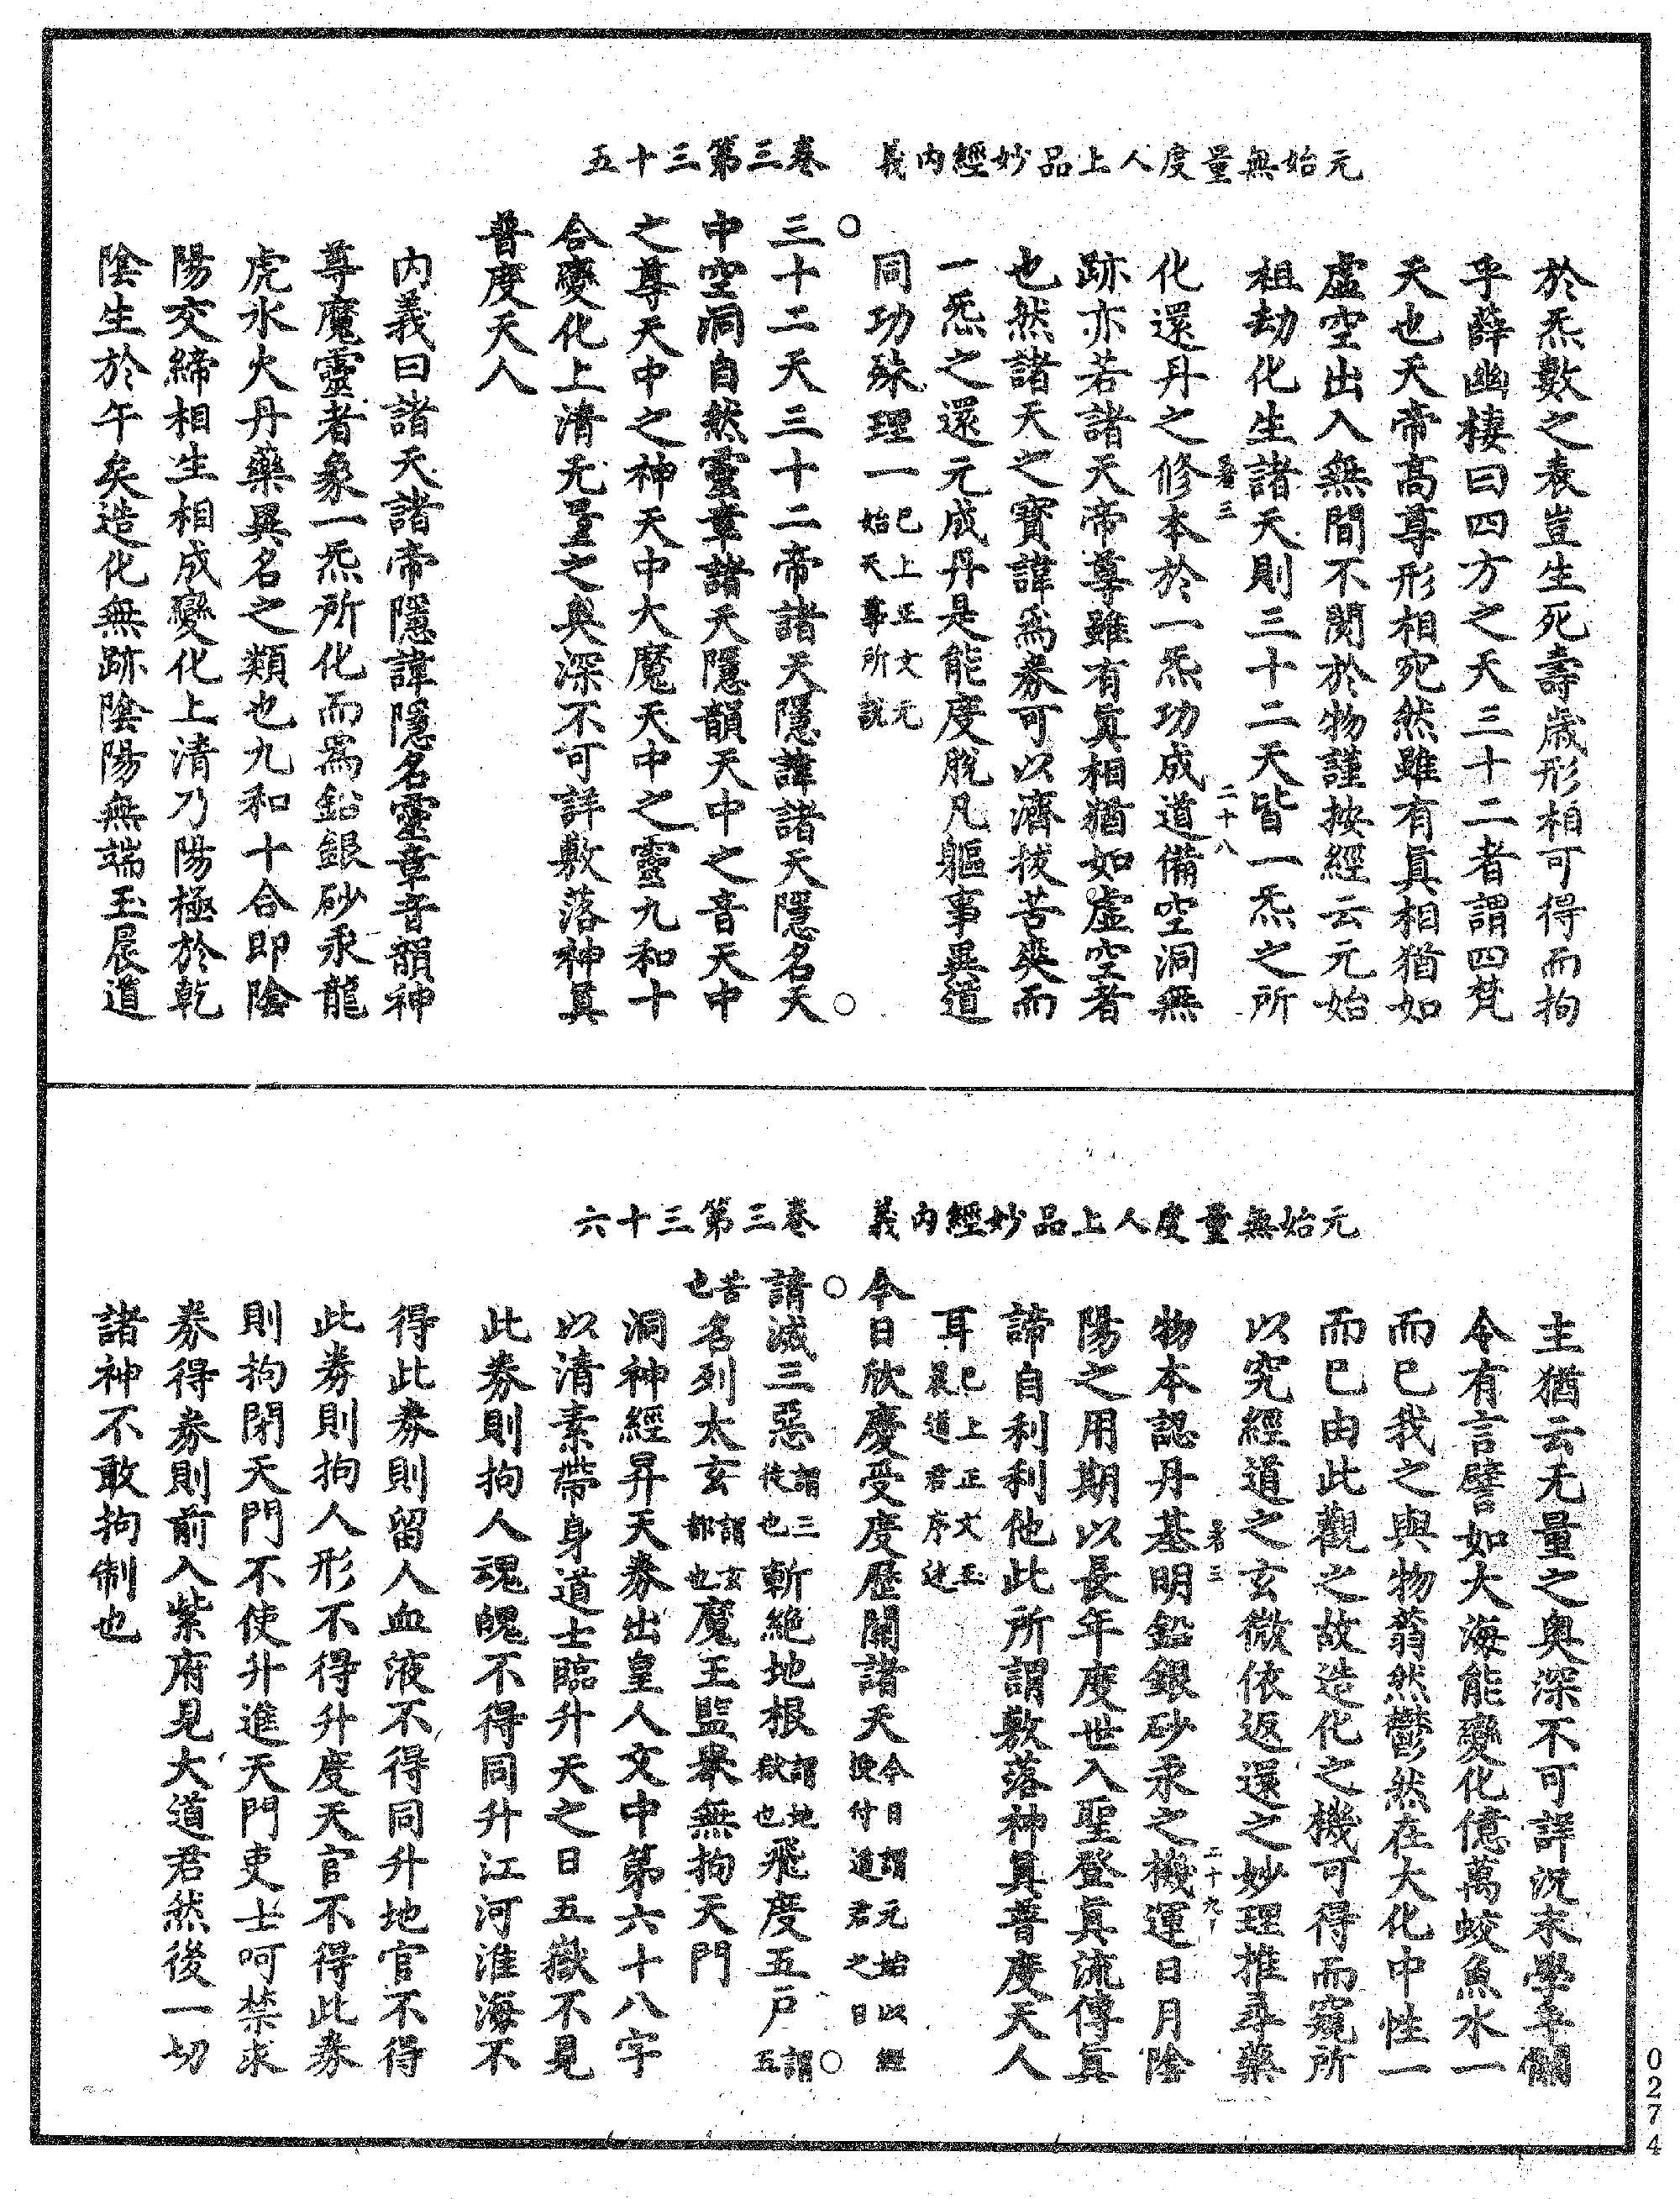 元始無量度人上品妙經內義　卷三第三十五
於炁數之表豈生死壽歲形相可得而拘
乎薛幽棲曰四方之天三十二者謂四梵
天也天帝高尊形相宛然雖有真相猶如
虛空出入無間不閡於物謹按經云元始
祖劫化生諸天則三十二天皆一炁之所
暑三　二十八
化還丹之修本於一炁功成道備空洞無
跡亦若諸天帝尊雖有真相猶如虛空者
也然諸天之寶諱為券可以濟拔苦爽而
一炁之還元成丹是能度脫凡軀事異道
同功殊理一已上正文元始天尊所說
○三十二天三十二帝諸天隱諱諸天隱名天○
中空洞自然靈章諸天隱韻天中之音天中
之尊天中之神天中大魔天中之靈九和十
合變化上清无量之奥深不可詳敷落神真
普度天人
內義曰諸天諸帝隱諱隱名靈章音韻神
尊魔靈者象一炁所化而為鉛銀砂汞龍
虎水火丹藥異名之類也九和十合即陰
陽交締相生相成變化上清乃陽極於乾
陰生於午矣造化無跡陰陽無端玉晨道
元始無量度人上品妙經內義　卷三第三十六
主猶云无量之奥深不可詳況末學乎關
令有言譬如大海能變化億萬蛟魚水一
而已我之與物蓊然鬱然在大化中性一
而已由此觀之故造化之機可得而窺所
以究經道之玄微依返還之妙理推尋藥
暑三　二十九
物本認丹基明鉛銀砂汞之機運日月陰
陽之用期以長年度世入聖登真流傳真
諦自利利他此所謂敷落神真普度天人
耳已上正文玉晨道君序述
今日欣慶受度歷關諸天今日謂元始以經法付道君之日
○請滅三惡謂三徒也斬絕地根謂地獄也飛度五戶謂五○
苦也名列太玄謂玄都也魔王監舉無拘天門
洞神經昇天券出皇人文中第六十八字
以清素帶身道士臨升天之日五嶽不見
此券則拘人魂魄不得同升江河淮海不
得此券則留人血液不得同升地官不得
此券則拘人形不得升度天官不得此券
則拘閉天門不使升進天門吏士呵禁求
券得券則前入紫府見大道君然後一切
諸神不敢拘制也
0274